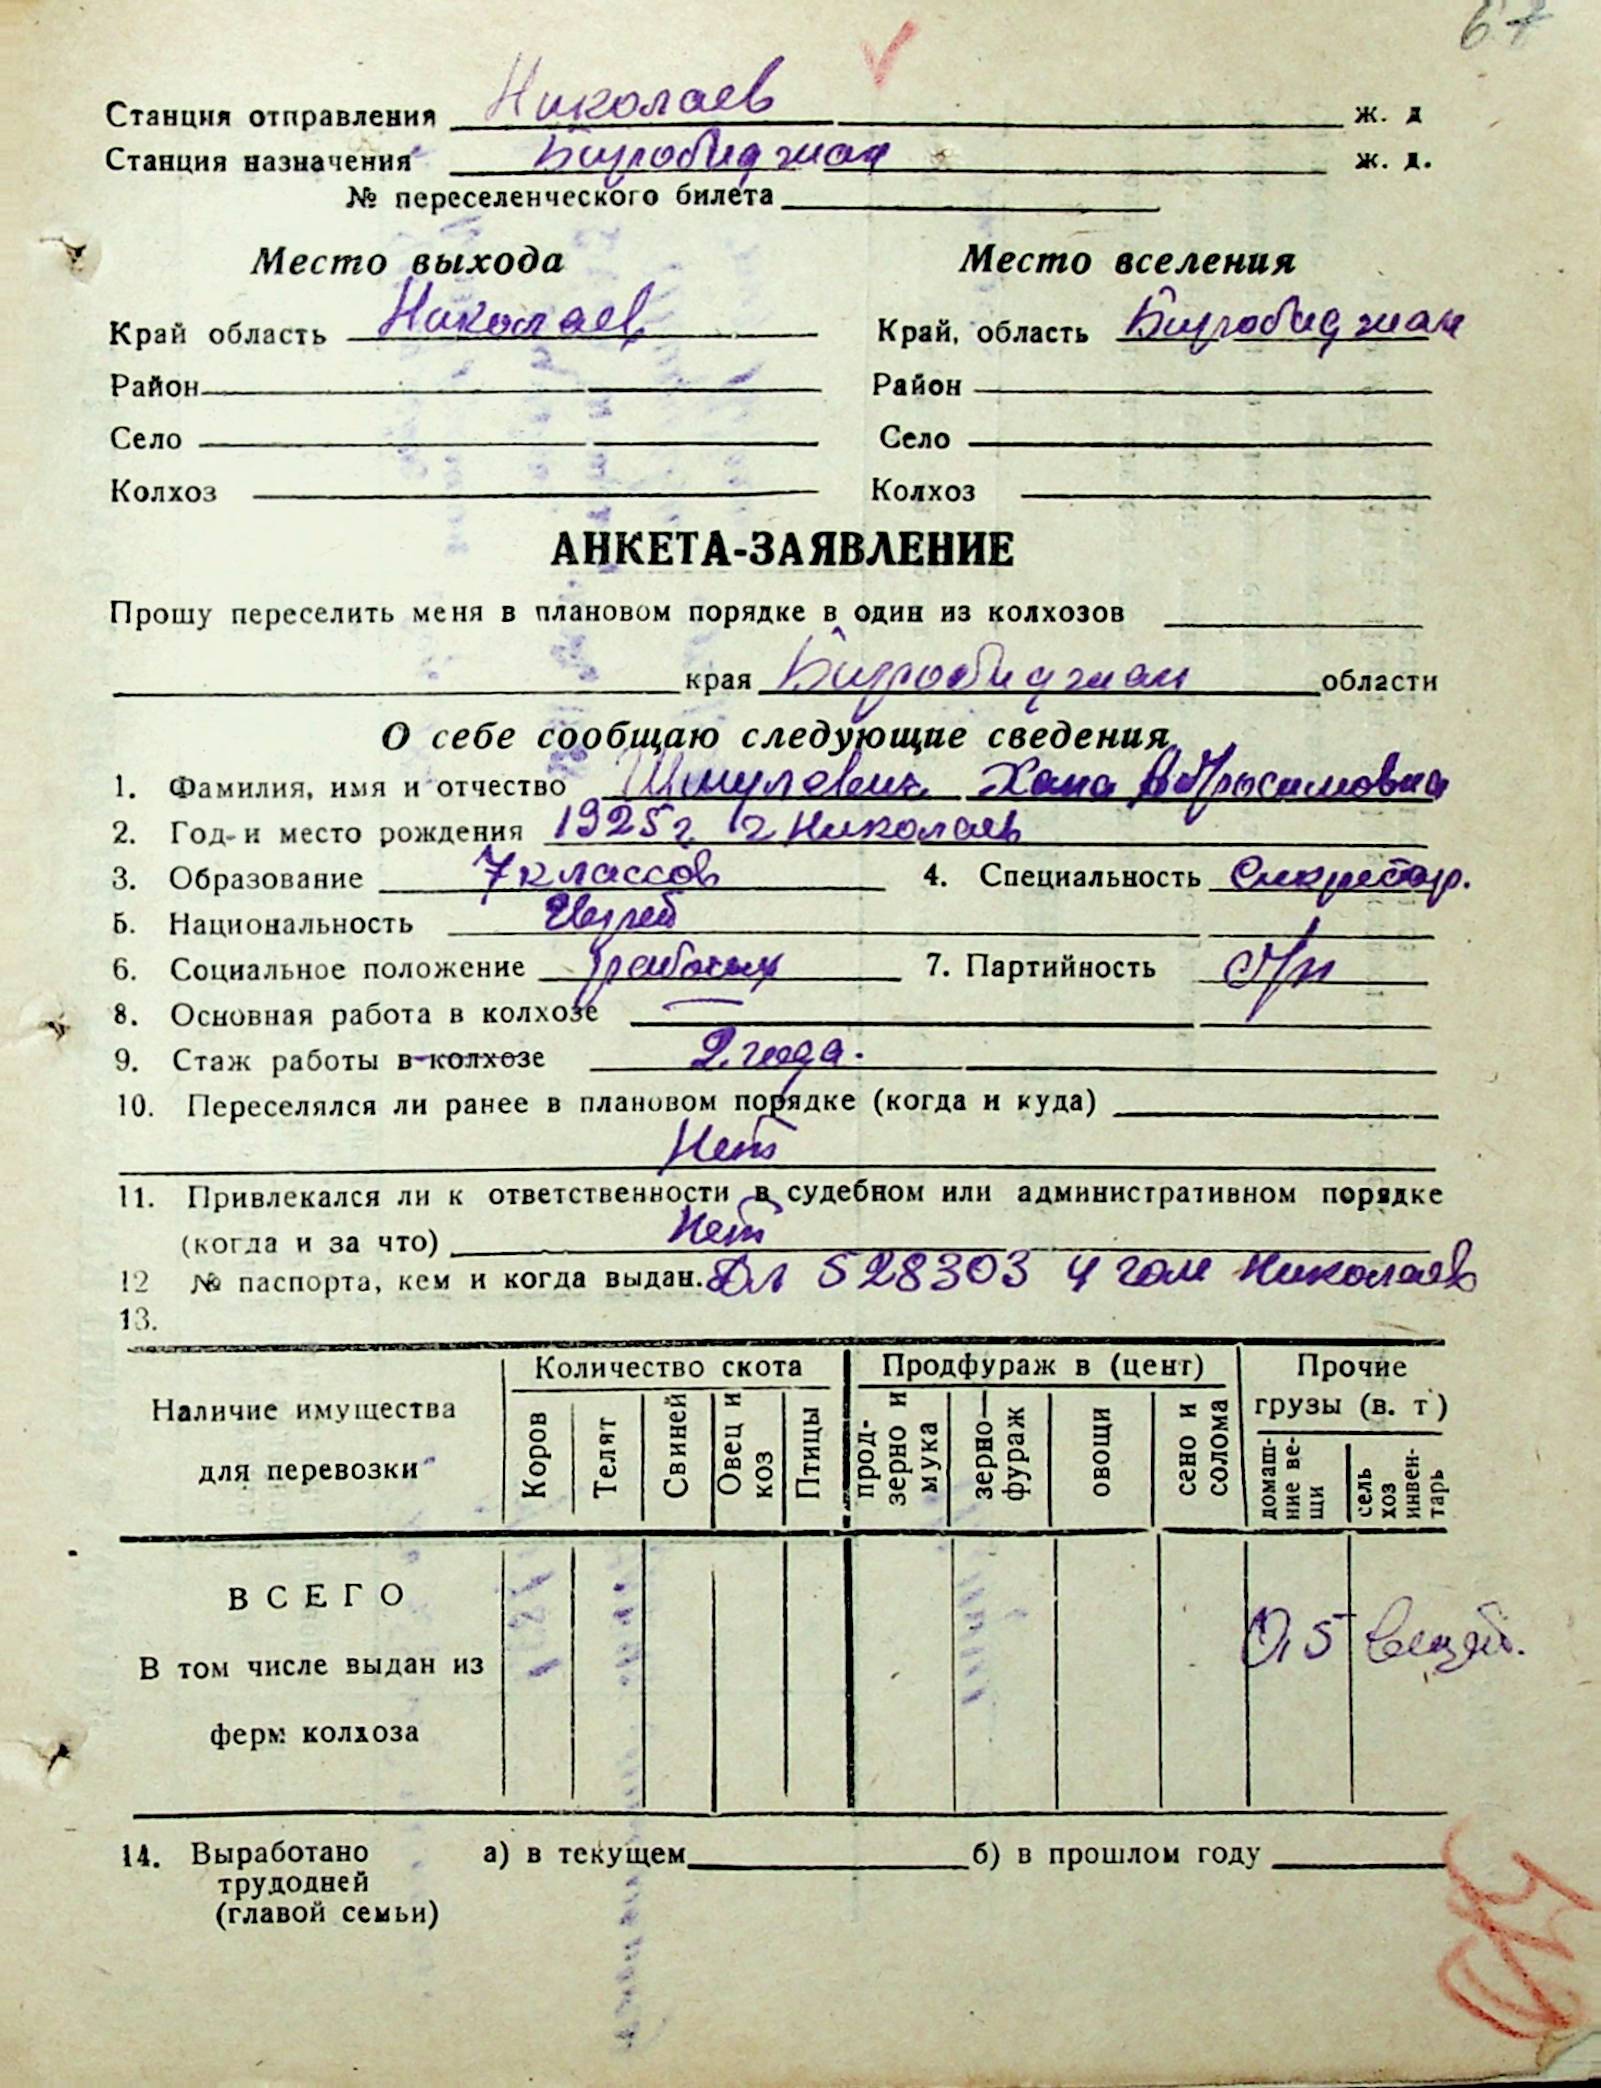 67
Станция отправления Николаев ж. д
Станция назначения Биробиджан ж. д.
№ переселенческого билета
Место выхода Место вселения
Край область Николаев Край, область Биробиджан
Район Район
Село Село
Колхоз Колхоз
АНКЕТА-ЗАЯВЛЕНИЕ
Прошу переселить меня в плановом порядке в один из колхозов
края Биробиджан области
О себе сообщаю следующие сведения
1. Фамилия, имя и отчество Шмулевич Хана
2. Год и место рождения 1925 г г Николаев
3. Образование 7 классов 4. Специальность Секретар.
5. Национальность Еврей
6. Социальное положение 7. Партийность б/п
8. Основная работа в колхозе —
9. Стаж работы в колхозе 2 года.
10. Переселялся ли ранее в плановом порядке (когда и куда)
Нет
11. Привлекался ли к ответственности в судебном или административном порядке
(когда и за что) Нет
12 № паспорта, кем и когда выдан. 528303 4 гом Николаев
13.
Наличие имущества для перевозки Количество скота Продфураж в (цент) Прочие грузы (в. т)
Коров Телят Свиней Овец и коз Птицы прод-зерно и мука зерно-фураж овощи сено и солома домаш-ние ве-щи сель хоз инвен-тарь
ВСЕГО
0,5 вещей.
В том числе выдан из
ферм колхоза
14. Выработано а) в текущем б) в прошлом году
трудодней
(главой семьи)